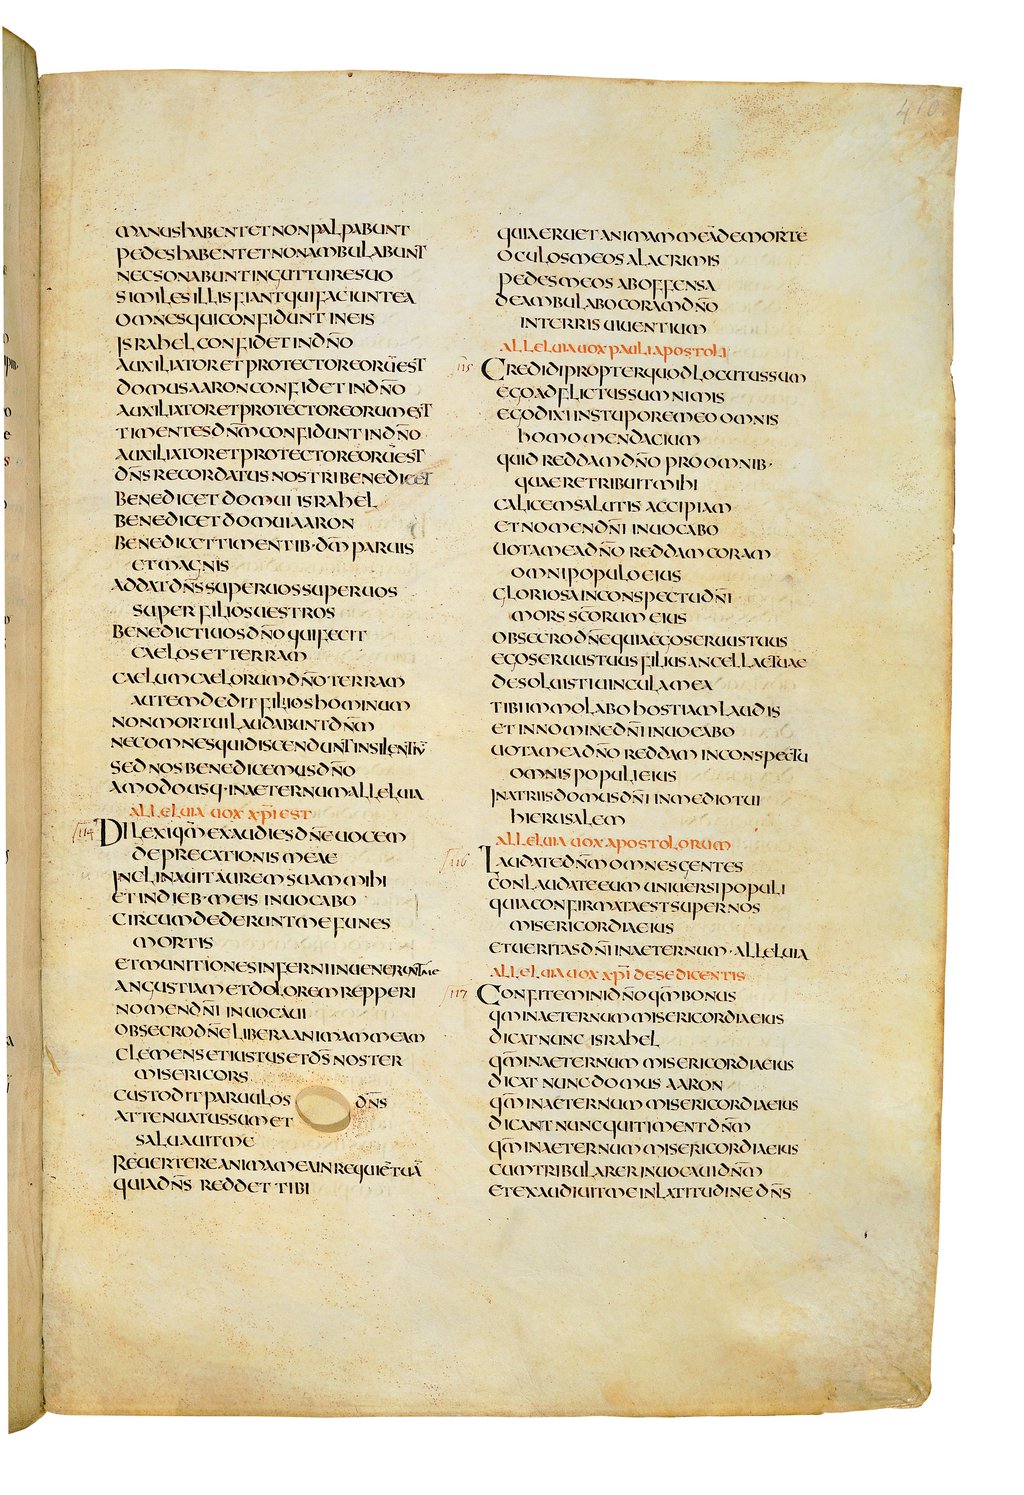 manus habent et non palpabunt
pedes habent et non ambulabunt
nec sonabunt in gutture suo
similes illis fiant qui faciunt ea
omnes qui confidunt in eis
israhel confidet in dño
auxiliator et protector eorū est
domus aaron confidet in dño
auxiliator et protector eorum est
timentes dñm confidunt in dño
auxiliator et protector eorū est
dñs recordatus nostri benedicet
benedicet domui israhel
benedicet domui aaron
benedicet timentib· dm̄ parvis
et magnis
addat dñs super vos super vos
super filios vestros
benedicti vos dño qui fecit
caelos et terram
caelum caelorum dño terram
autem dedit filiis hominum
non mortui laudabunt dñm
nec omnes qui discendunt in silentiū
sed nos benedicemus dño
amodo usq· in aeternum alleluia
alleluia vox xp̄i est
114 Dilexi qm̄ exaudies dñe vocem
deprecationis meae
inclinavit aurem suam mihi
et in dieb· meis invocabo
circumdederunt me funes
mortis
et munitiones inferni invenerunt me
angustiam et dolorem repperi
nomen dñi invocavi
obsecro dñe libera animam meam
clemens et iustus et dš noster
misericors
custodit parvulos dñs
attenuatus sum et
salvavit me
revertere anima mea in requiē tuā
quia dñs reddet tibi
quia eruet animam meā de morte
oculos meos a lacrimis
pedes meos ab offensa
deambulabo coram dño
in terris viventium
alleluia vox pauli apostoli
115 Credidi propter quod locutus sum
ego adflictus sum nimis
ego dixi in stupore meo omnis
homo mendacium
quid reddam dño pro omnib·
quae retribuit mihi
calicem salutis accipiam
et nomen dñi invocabo
vota mea dño reddam coram
omni populo eius
gloriosa in conspectu dñi
mors sc̄orum eius
obsecro dñe quia ego servus tuus
ego servus tuus filius ancellae tuae
desoluisti vincula mea
tibi immolabo hostiam laudis
et in nomine dñi invocabo
vota mea dño reddam in conspectu
omnis populi eius
in atriis domus dñi in medio tui
hierusalem
alleluia vox apostolorum
116 Laudate dñm omnes gentes
conlaudate eum universi populi
quia confirmata est super nos
misericordia eius
et veritas dñi in aeternum · alleluia
alleluia vox xp̄i de se dicentis
117 Confitemini dño qm̄ bonus
qm̄ in aeternum misericordia eius
dicat nunc israhel
qm̄ in aeternum misericordia eius
dicat nunc domus aaron
qm̄ in aeternum misericordia eius
dicant nunc qui timent dñm
qm̄ in aeternum misericordia eius
cum tribularer invocavi dñm
et exaudivit me in latitudine dñs